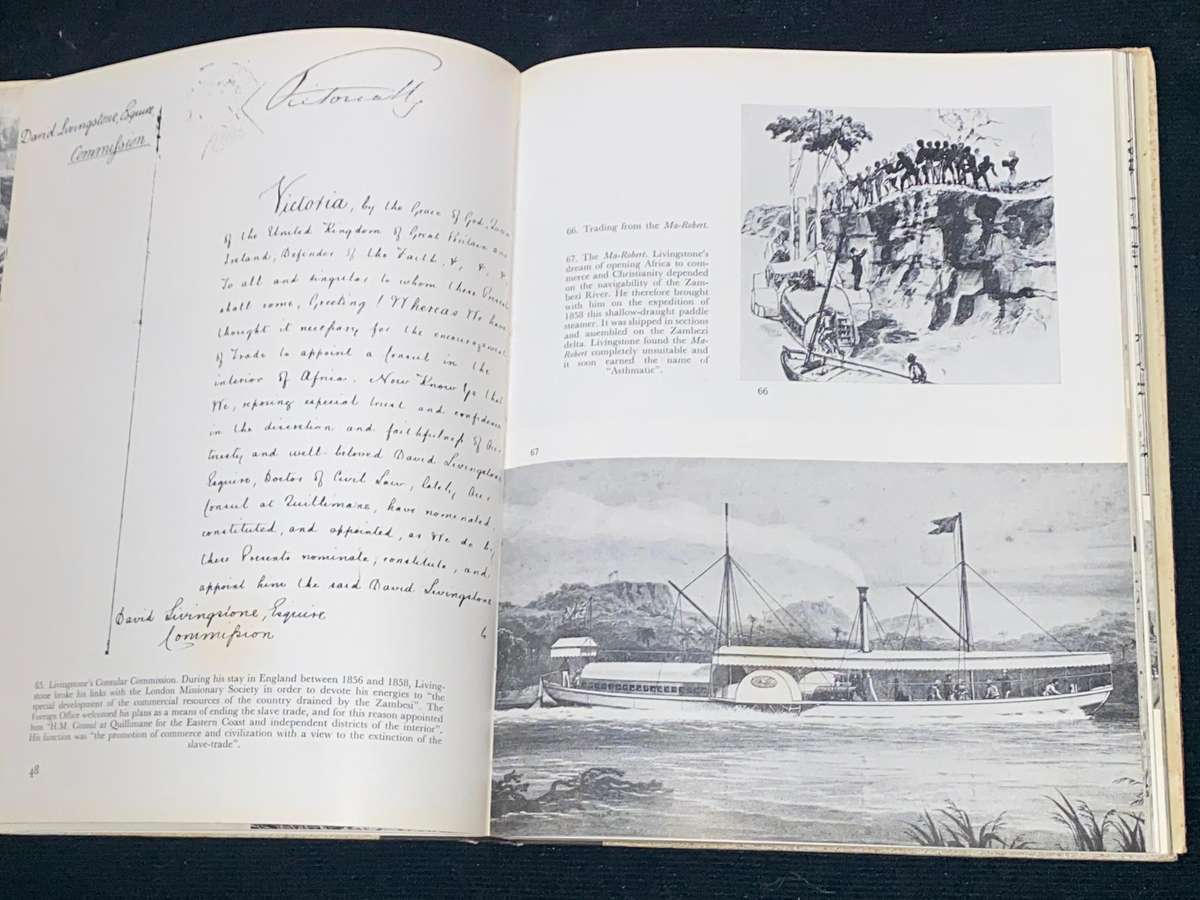 Victoria R
David Livingstone, Esquire
Commission
Victoria, by the Grace of God, Queen
of the United Kingdom of Great Britain and
Ireland, Defender of the Faith, &, &, &
To all and singular to whom these Presents
shall come, Greeting! Whereas We have
thought it necessary for the encouragement
of Trade to appoint a Consul in the
interior of Africa. Now Know Ye that
We, reposing especial trust and confidence
in the discretion and faithfulness of Our
trusty and well-beloved David Livingstone
Esquire, Doctor of Civil Law, lately Our
Consul at Quillimane, have nominated,
constituted, and appointed, as We do by
these Presents nominate, constitute, and,
appoint him the said David Livingstone
David Livingstone, Esquire
Commission
65. Livingstone's Consular Commission. During his stay in England between 1856 and 1858, Living-
stone broke his links with the London Missionary Society in order to devote his energies to "the
special development of the commercial resources of the country drained by the Zambesi". The
Foreign Office welcomed his plans as a means of ending the slave trade, and for this reason appointed
him "H.M. Consul at Quillimane for the Eastern Coast and independent districts of the interior".
His function was "the promotion of commerce and civilization with a view to the extinction of the
slave-trade".
48
66. Trading from the Ma-Robert.
67. The Ma-Robert. Livingstone's
dream of opening Africa to com-
merce and Christianity depended
on the navigability of the Zam-
bezi River. He therefore brought
with him on the expedition of
1858 this shallow-draught paddle
steamer. It was shipped in sections
and assembled on the Zambezi
delta. Livingstone found the Ma-
Robert completely unsuitable and
it soon earned the name of
"Asthmatic".
66
67